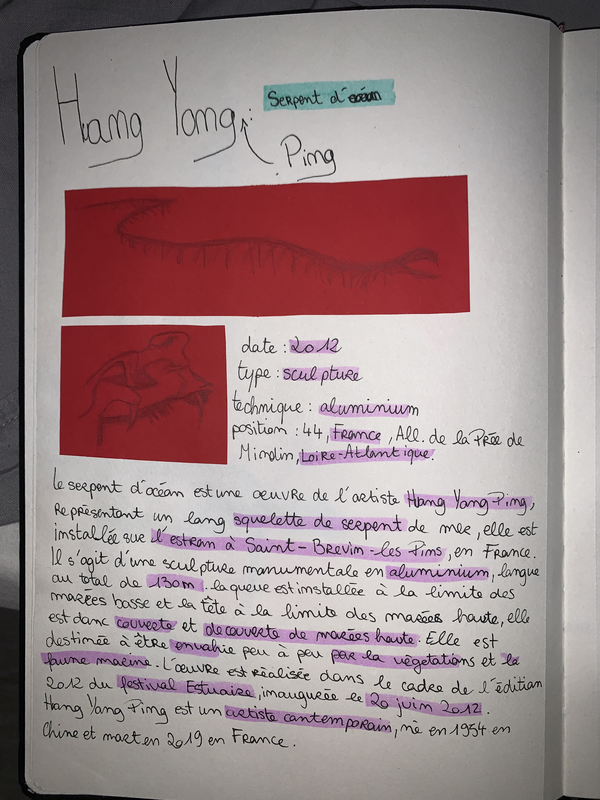 Hang Yong :
Serpent d'océan
Ping
date : 2012
type : sculpture
technique : aluminium
position : 44, France, All. de la Prée de
Mindin, Loire-Atlantique.
Le serpent d'océan est une œuvre de l'artiste Hang Yang Ping,
Représentant un long squelette de serpent de mer, elle est
installée sur l'estran à Saint-Brevin-les Pins, en France.
Il s'agit d'une sculpture monumentale en aluminium, longue
au total de 130m. la queue est installée à la limite des
marées basse et la tête à la limite des marées haute, elle
est donc couverte et découverte de marées haute. Elle est
destinée à être envahie peu à peu par la végétations et la
faune marine. L'œuvre est réalisée dans le cadre de l'édition
2012 du festival Estuaire, inaugurée le 20 juin 2012.
Hang Yang Ping est un artiste contemporain, né en 1954 en
Chine et mort en 2019 en France.